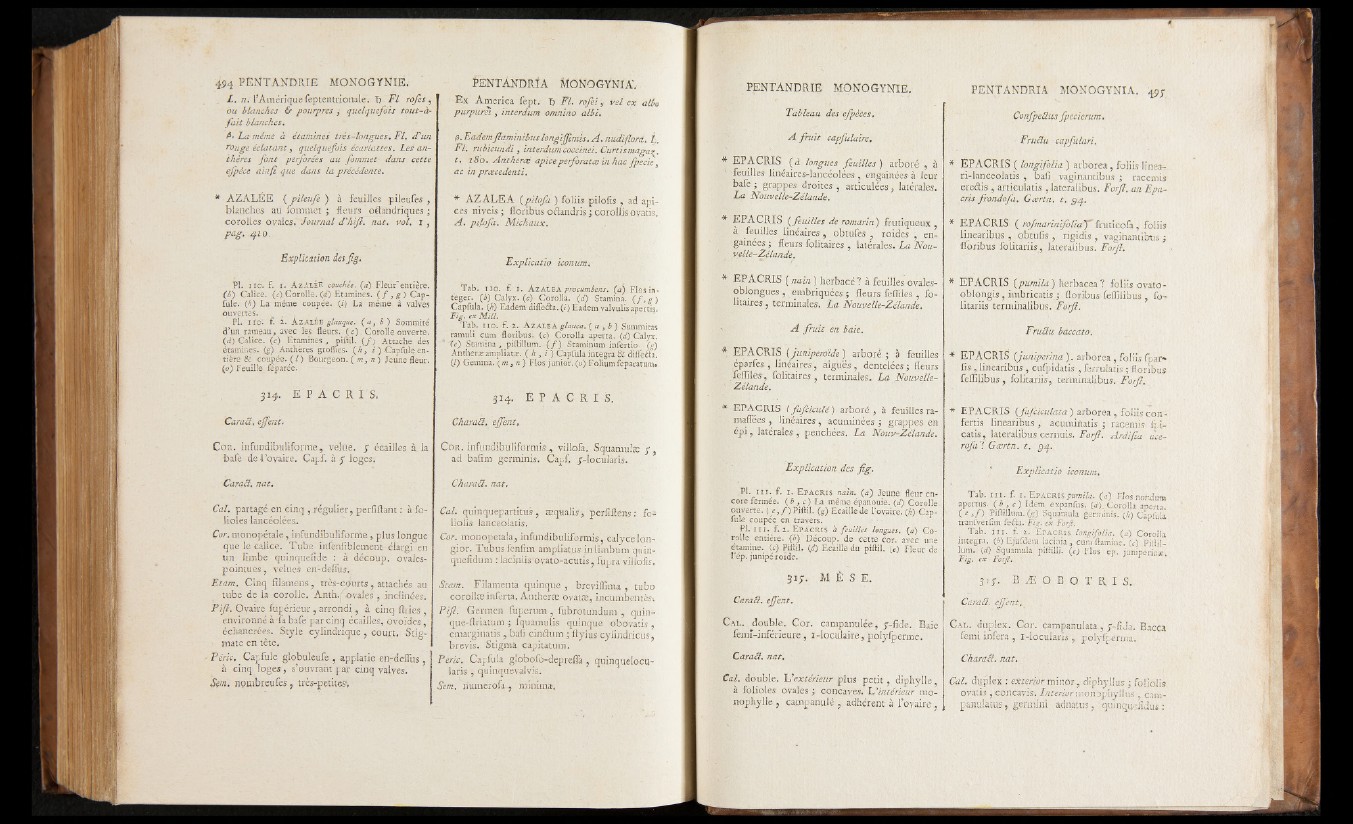 494 PENTANDRIE MONOGYNIE.
L. n. l'Amérique septentrionale. ♄ Fl roses,
ou blanches & pourpres, quelquefois tout-à-
fait blanches.
β. La même à étamines très-longues. Fl. d'un
rouge éclatant, quelquefois écarlattes. Les an-
thères sont perforées au sommet dans cette
espèce ainsi que dans la précédente.
* AZALÉE ( pileuse ) à feuilles pileuses,
blanches au sommet ; fleurs octandriques ;
corolles ovales. Journal d'hist. nat. vol. 1,
pag. 410.
Explication des fig.
Pl. 110. f. 1. AZALÉE couchée. (a) Fleur entière.
(b) Calice. (c) Corolle. (d) Etamines. ( f, g ) Cap-
sule. (h) La même coupée. (i) La même à valves
ouvertes.
Pl. 110. f. 2. AZALÉE glauque. ( a, b ) Sommité
d'un rameau, avec les fleurs. (c) Corolle ouverte.
(d) Calice. (e) Etamines, pistil. (f) Attache des
étamines. (g) Anthères grossies. (h, i) Capsule en-
tière & coupée. (l) Bourgeon. ( m, n ) Jeune fleur.
(o) Feuille séparée.
314. EPACRIS.
Caract. essent.
COR. infundibuliforme, velue. 5 écailles à la
base de l'ovaire. Caps. à 5 loges.
Caract. nat.
Cal. partagé en cinq, régulier, persistant : à fo-
lioles lancéolées.
Cor. monopétale, infundibuliforme, plus longue
que le calice. Tube insensiblement élargi en
un limbe quinquefide : à découp. ovales-
pointues, velues en-dessus.
Etam. Cinq filamens, très-courts, attachés au
tube de la corolle. Anth. ovales, inclinées.
Pist. Ovaire supérieur, arrondi, à cinq stries,
environné à sa base par cinq écailles, ovoïdes,
échancrées. Style cylindrique, court. Stig-
mate en tête.
Péric. Capsule globuleuse, applatie en-dessus,
à cinq loges, s'ouvrant par cinq valves.
Sem. nombreuses, très-petites.
PENTANDRIA MONOGYNIA.
Ex America sept. ♄ Fl. rosei, vel ex albo
purpurei, interdum omnino albi.
β. Eadem staminibus longissimis. A. nudiflora. L.
Fl. rubicundi, interdum coccinei. Curtis magaz.
t. 180. Antheræ apice perforatæ in hac specie,
ac in præcedenti.
* AZALEA (pilosa) foliis pilosis, ad api-
ces niveis ; floribus octandris ; corollis ovatis.
A. pilosa. Michaux.
Explicatio iconum.
Tab. 110. f. 1. AZALEA procumbens. (a) Flos in-
teger. (b) Calyx. (c) Corolla. (d) Stamina. (f, g)
Capsula. (h) Eadem dissecta. (i) Eadem valvulis apertis.
Fig. ex Mill.
Tab. 110. f. 2. AZALEA glauca. ( a, b ) Summitas
ramuli cum floribus. (c) Corolla aperta. (d) Calyx.
(e) Stamina, pistillum. (f) Staminum insertio. (g)
Antheræ ampliatæ. ( h, i ) Capsula integra & dissecta.
(l) Gemma. (m, n) Flos junior. (o) Folium separatum.
314. EPACRIS.
Charact. essent.
COR. infundibuliformis, villosa. Squamulæ 5,
ad basim germinis. Caps. 5-locularis.
Charact. nat.
Cal. quinquepartitus, æqualis, persistens : fo-
liolis lanceolatis.
Cor. monopetala, infundibuliformis, calyce lon-
gior. Tubus sensim ampliatus in limbum quin-
quefidum : laciniis ovato-acutis, supra villosis.
Stam. Filamenta quinque, brevissima, tubo
corollæ inserta. Antheræ ovatæ, incumbentes.
Pist. Germen superum, subrotundum, quin-
que-striatum ; squamulis quinque obovatis,
emarginatis, basi cinctum ; stylus cylindricus,
brevis. Stigma capitatum.
Peric. Capsula globoso-depressa, quinquelocu-
laris, quinquevalvis.
Sem. numerosa, minima.
PENTANDRIE MONOGYNIE.
Tableau des espèces.
A fruit capsulaire.
* EPACRIS (à longues feuilles) arboré, à
feuilles linéaires-lancéolées, engaînées à leur
base ; grappes droites, articulées, latérales.
La Nouvelle-Zélande.
* EPACRIS (feuilles de romarin) frutiqueux,
à feuilles linéaires, obtuses, roides, en-
gainées ; fleurs solitaires, latérales. La Nou-
velle-Zélande.
* EPACRIS (nain) herbacé? à feuilles ovales-
oblongues, embriquées ; fleurs sessiles, so-
litaires, terminales. La Nouvelle-Zélande.
A fruit en baie.
* EPACRIS (juniperoïde) arboré ; à feuilles
éparses, linéaires, aiguës, dentelées ; fleurs
sessiles, solitaires, terminales. La Nouvelle-
Zélande.
* EPACRIS (fasciculé) arboré, à feuilles ra-
massées, linéaires, acuminées ; grappes en
épi, latérales, penchées. La Nouv-Zélande.
Explication des fig.
Pl. 111. f. 1. EPACRIS nain. (a) Jeune fleur en-
core fermée. ( b, c ) La même épanouie. (d) Corolle
ouverte. (e, f) Pistil. (g) Ecaille de l'ovaire. (h) Cap-
sule coupée en travers.
Pl. 111. f. 2. EPACRIS à feuilles longues. (a) Co-
rolle entière. (b) Découp. de cette cor. avec une
étamine. (c) Pistil. (d) Ecaille du pistil. (e) Fleur de
l'ép. juniperoïde.
315. MÉSE.
Caract. essent.
CAL. double. Cor. campanulée, 5-fide. Baie
semi-inférieure, 1-loculaire, polysperme.
Caract. nat.
Cal. double. L'extérieur plus petit, diphylle,
à folioles ovales ; concaves. L'intérieur mo-
nophylle, campanulé, adhérent à l'ovaire,
PENTANDRIA MONOGYNIA. 495
Conspectus specierum.
Fructu capsulari.
* EPACRIS (longifolia) arborea, foliis linea-
ri-lanceolatis, basi vaginantibus ; racemis
erectis, articulatis, lateralibus. Forst. an Epa-
cris frondosa. Gærtn. t. 94.
* EPACRIS (rosmarinifolia) fruticosa, foliis
linearibus, obtusis, rigidis, vaginantibus ;
floribus solitariis, lateralibus. Forst.
* EPACRIS (pumila) herbacea? foliis ovato-
oblongis, imbricatis ; floribus sessilibus, so-
litariis terminalibus. Forst.
Fructu baccato.
* EPACRIS (juniperina). arborea, foliis spar-
sis, linearibus, cuspidatis, serrulatis ; floribus
sessilibus, solitariis, terminalibus. Forst.
* EPACRIS (fasciculata) arborea, foliis con-
fertis linearibus, acuminatis ; racemis spi-
catis, lateralibus cernuis. Forst. Ardisia ace-
rosa? Gærtn. t. 94.
Explicatio iconum.
Tab. 111. f. 1. EPACRIS pumila. (a) Flos nondum
apertus. ( b, c ) Idem expansus. (d) Corolla aperta.
( e, f ) Pistillum. (g) Squamula germinis. (h) Capsula
transversim secta. Fig. ex Forst.
Tab. 111. f. 2. EPACRIS longifolia. (a) Corolla
integra. (b) Ejusdem lacinia, cum stamine. (c) Pistil-
lum. (d) Squamula pistilli. (e) Flos ep. juniperinæ.
Fig. ex Forst.
315. BÆOBOTRIS.
Caract. essent.
CAL. duplex. Cor. campanulata, 5-fida. Bacca
semi infera, 1-locularis, polysperma.
Charact. nat.
Cal. duplex : exterior minor, diphyllus ; foliolis
ovatis, concavis. Interior monophyllus, cam-
panulatus, germini adnatus, quinquefidus :